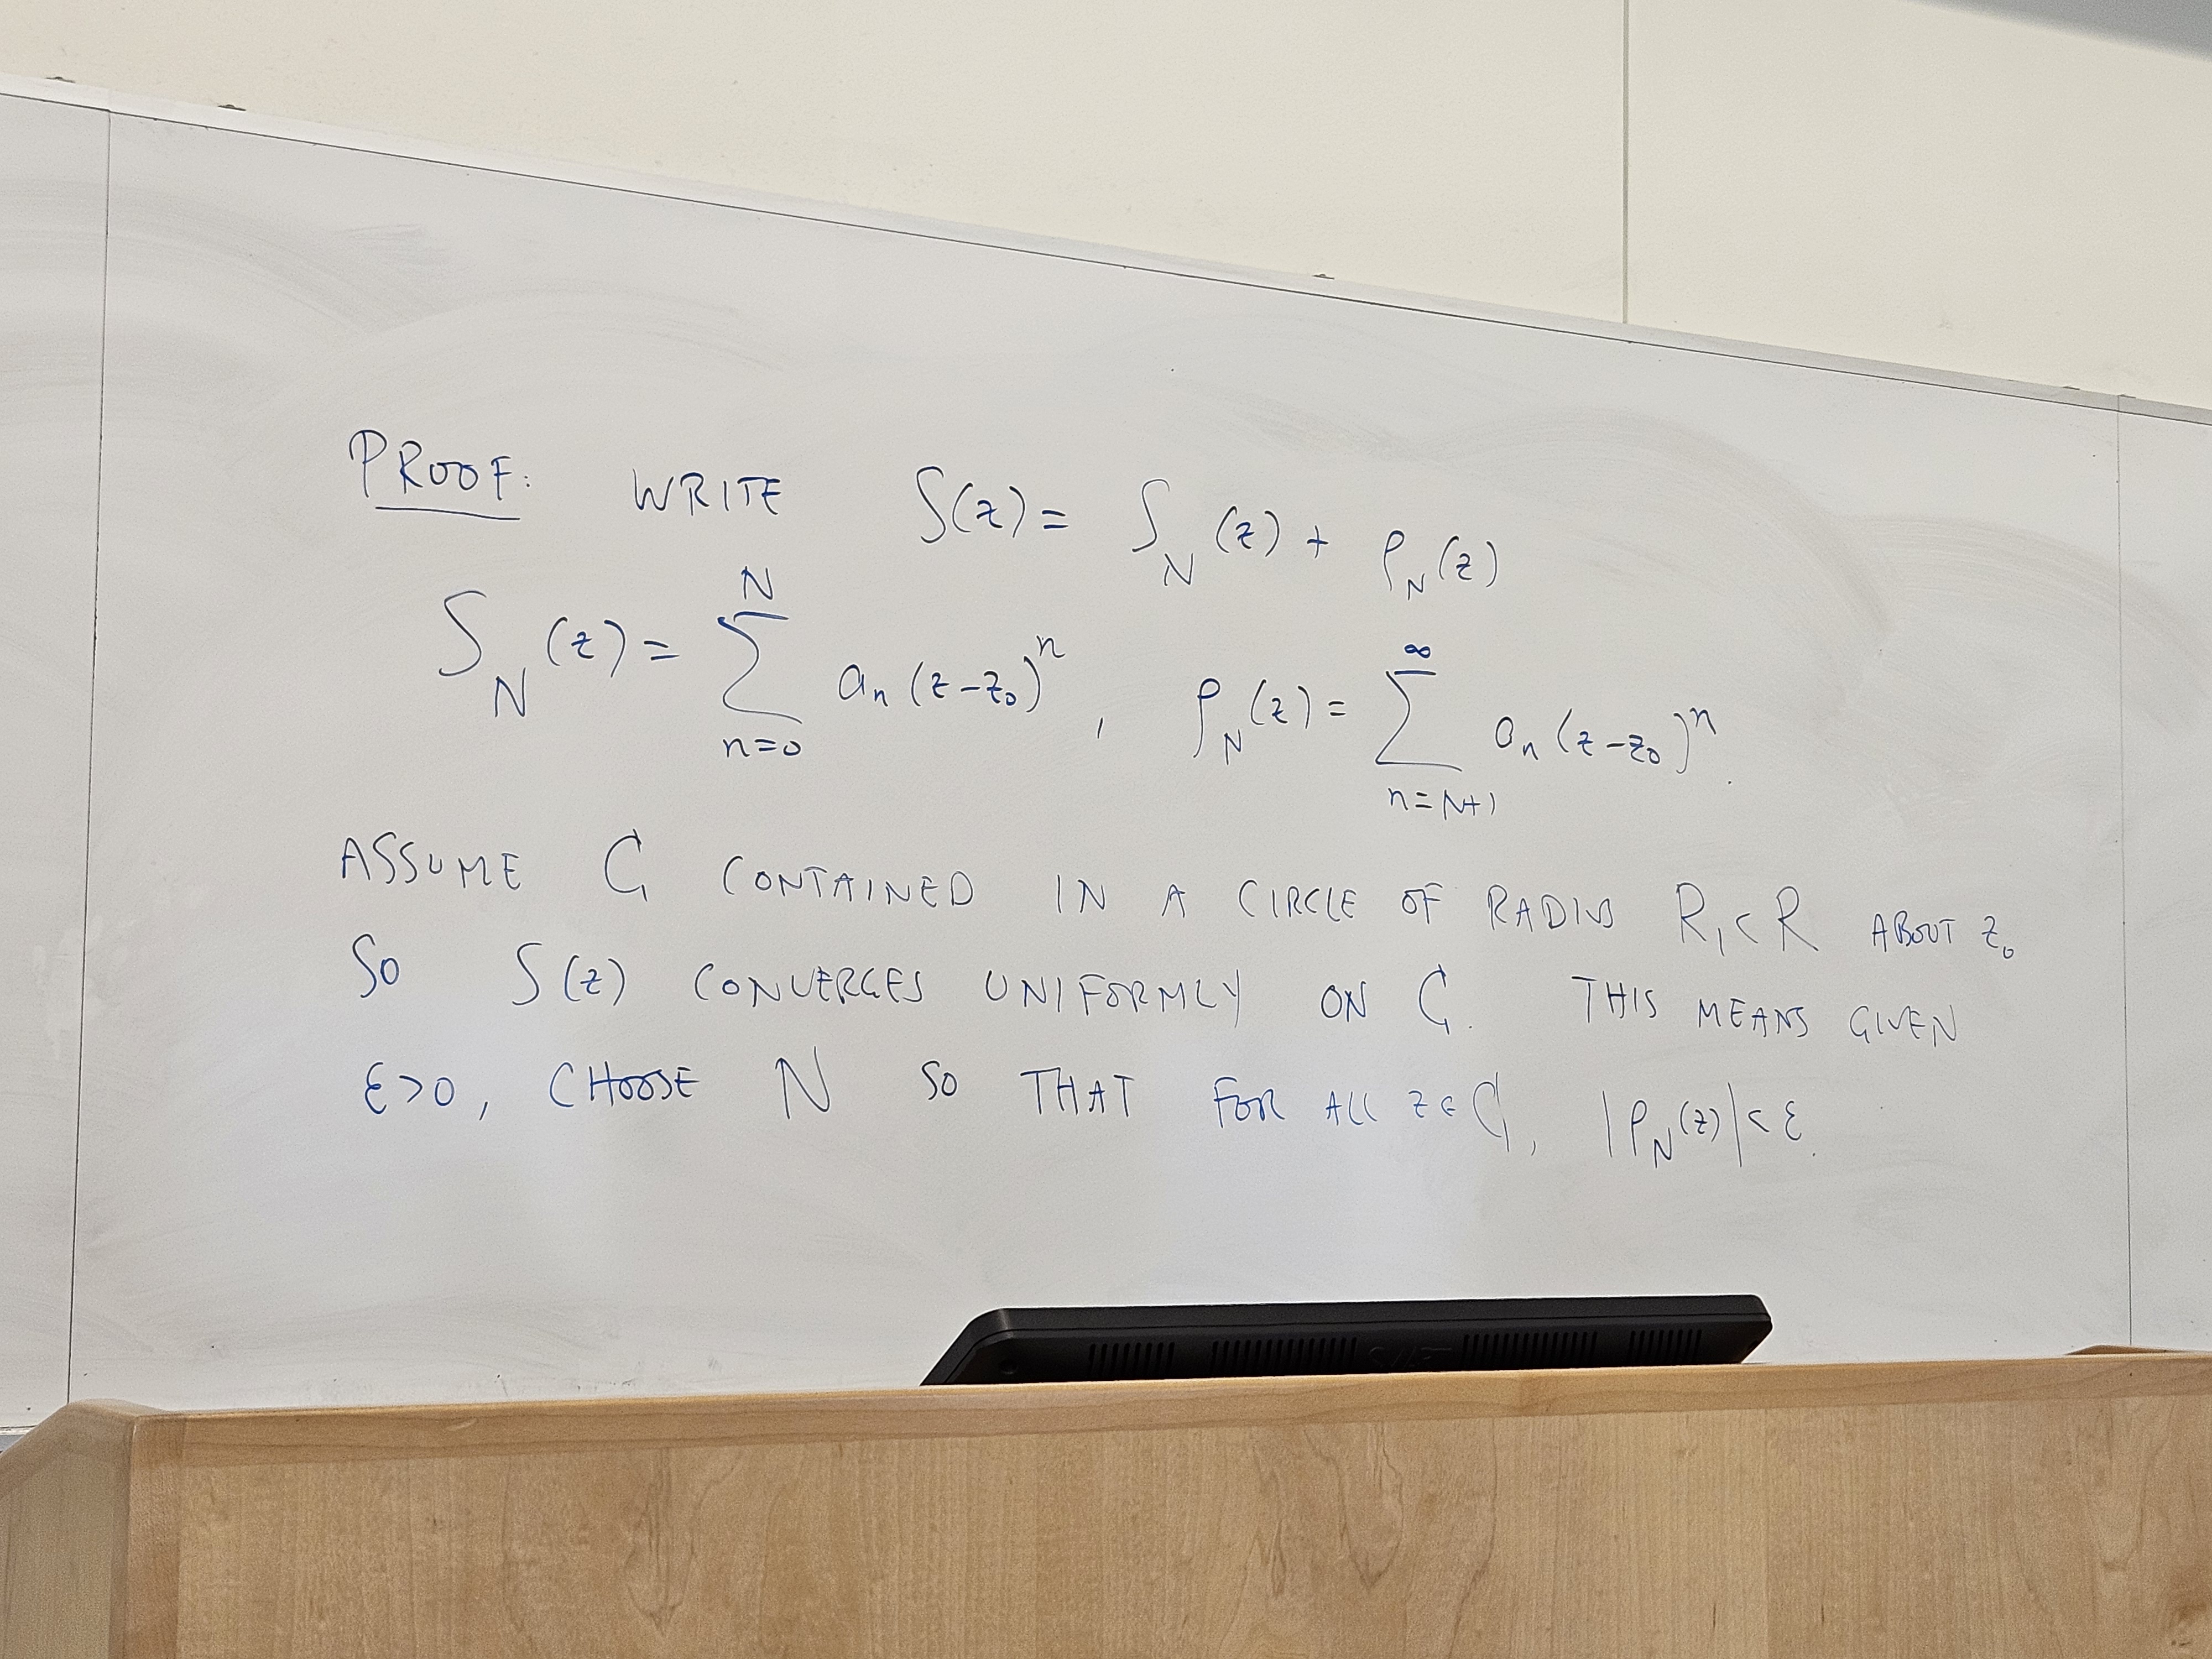 PROOF: WRITE S(z) = S_N(z) + ρ_N(z)
S_N(z) = ∑_{n=0}^{N} a_n (z-z_0)^n , ρ_N(z) = ∑_{n=N+1}^{∞} a_n (z-z_0)^n.
ASSUME C CONTAINED IN A CIRCLE OF RADIUS R_1 < R ABOUT z_0
SO S(z) CONVERGES UNIFORMLY ON C. THIS MEANS GIVEN
ε>0, CHOOSE N SO THAT FOR ALL z ∈ C, |ρ_N(z)| < ε.